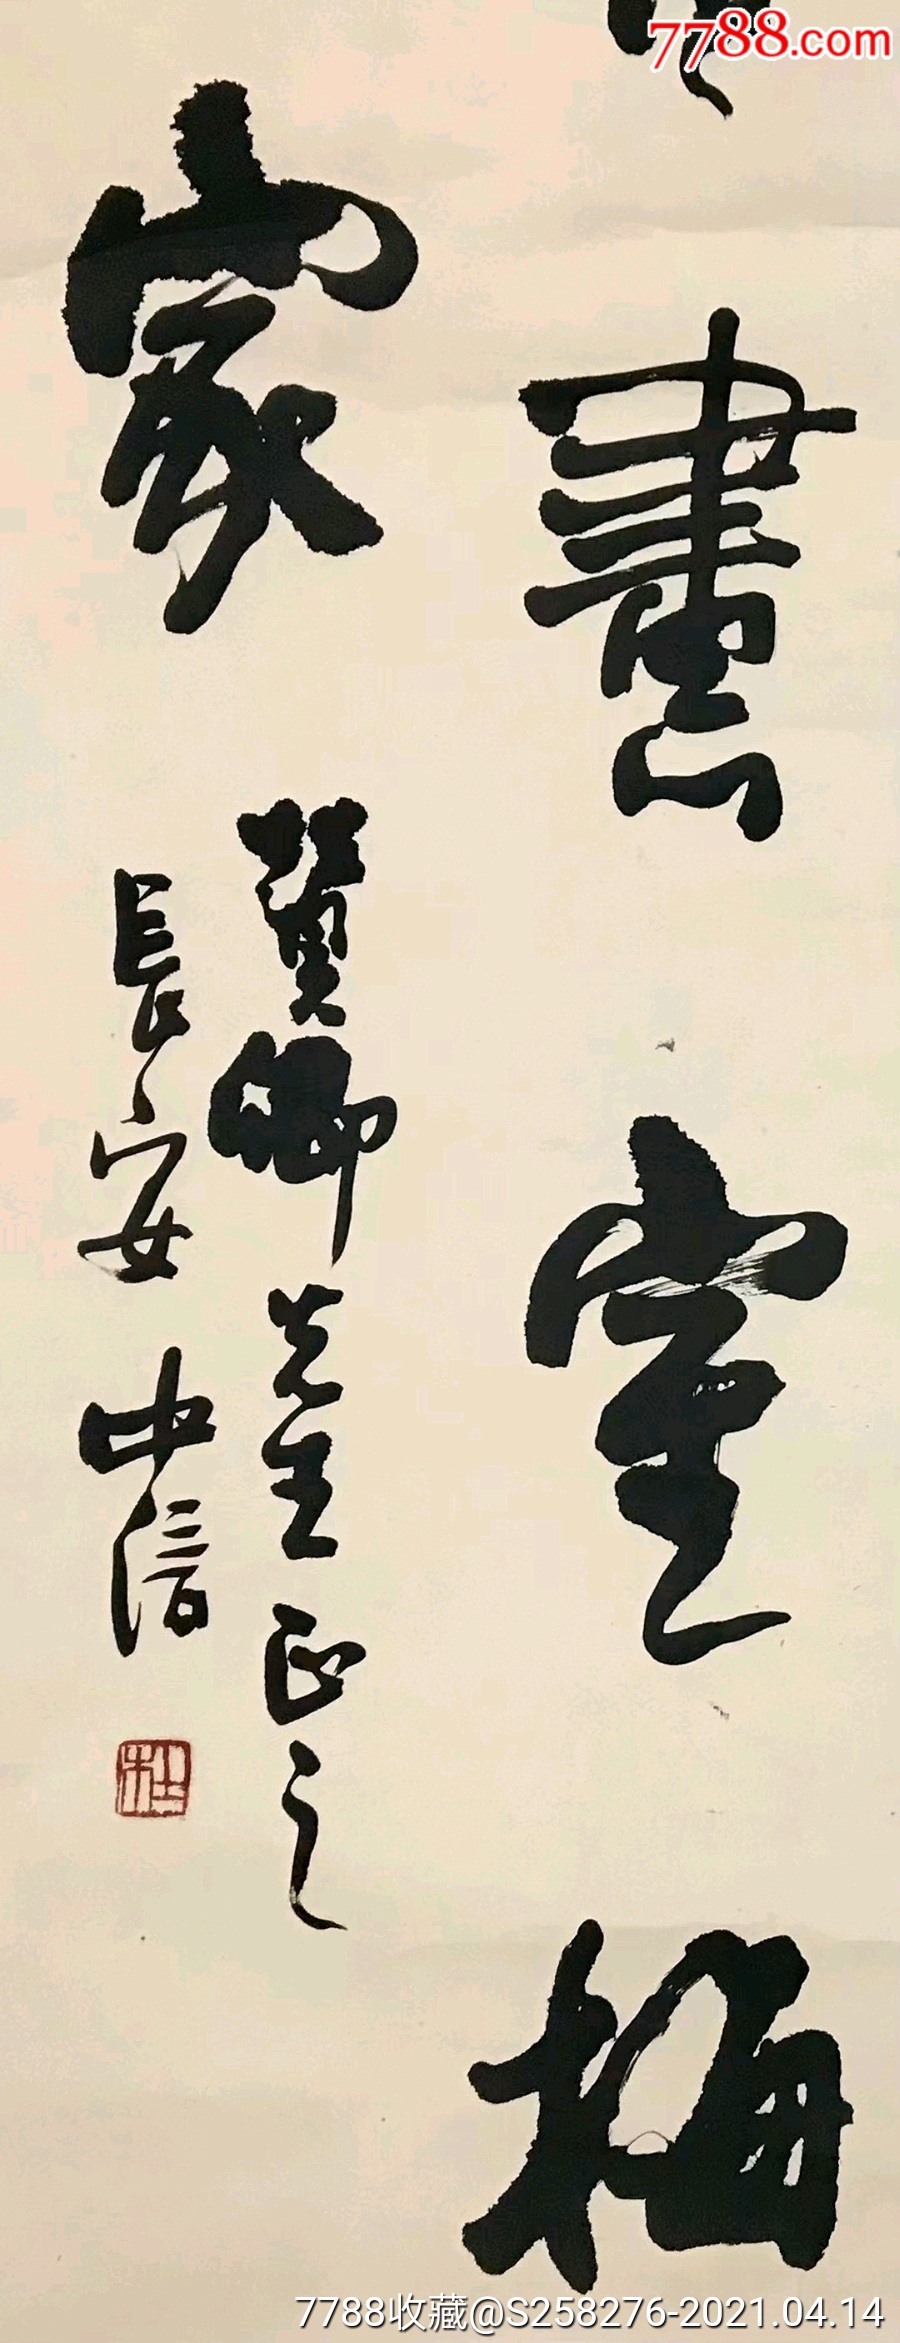 畫室梅
家
翼卿先生正之
長安中信
杜
7788.com
7788收藏@S258276-2021.04.14